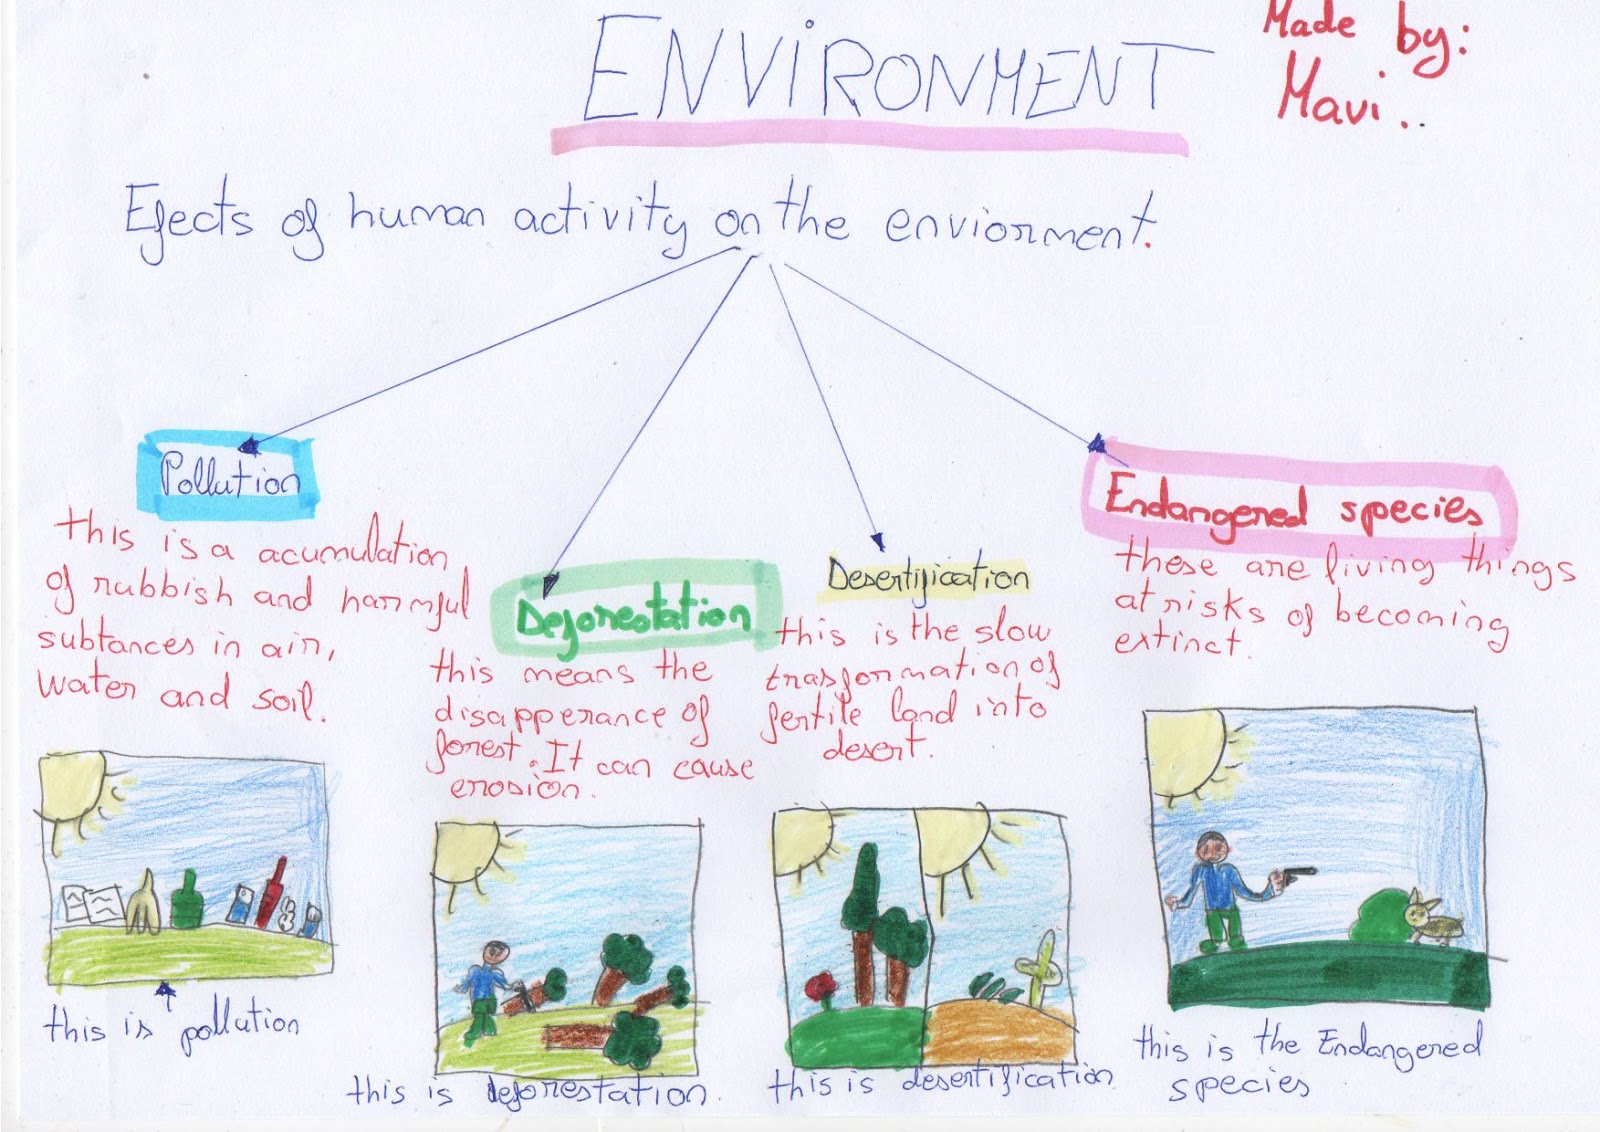 ENVIRONMENT
Made by:
Mavi..
Efects of human activity on the enviorment.
Pollution
this is a acumulation
of rubbish and harmful
subtances in air,
water and soil.
Deforestation
this means the
disapperance of
forest. It can cause
erosion.
Desertification
this is the slow
trasformation of
fertile land into
desert.
Endangered species
these are living things
at risks of becoming
extinct.
this is pollution
this is deforestation.
this is desertification.
this is the Endangered
species